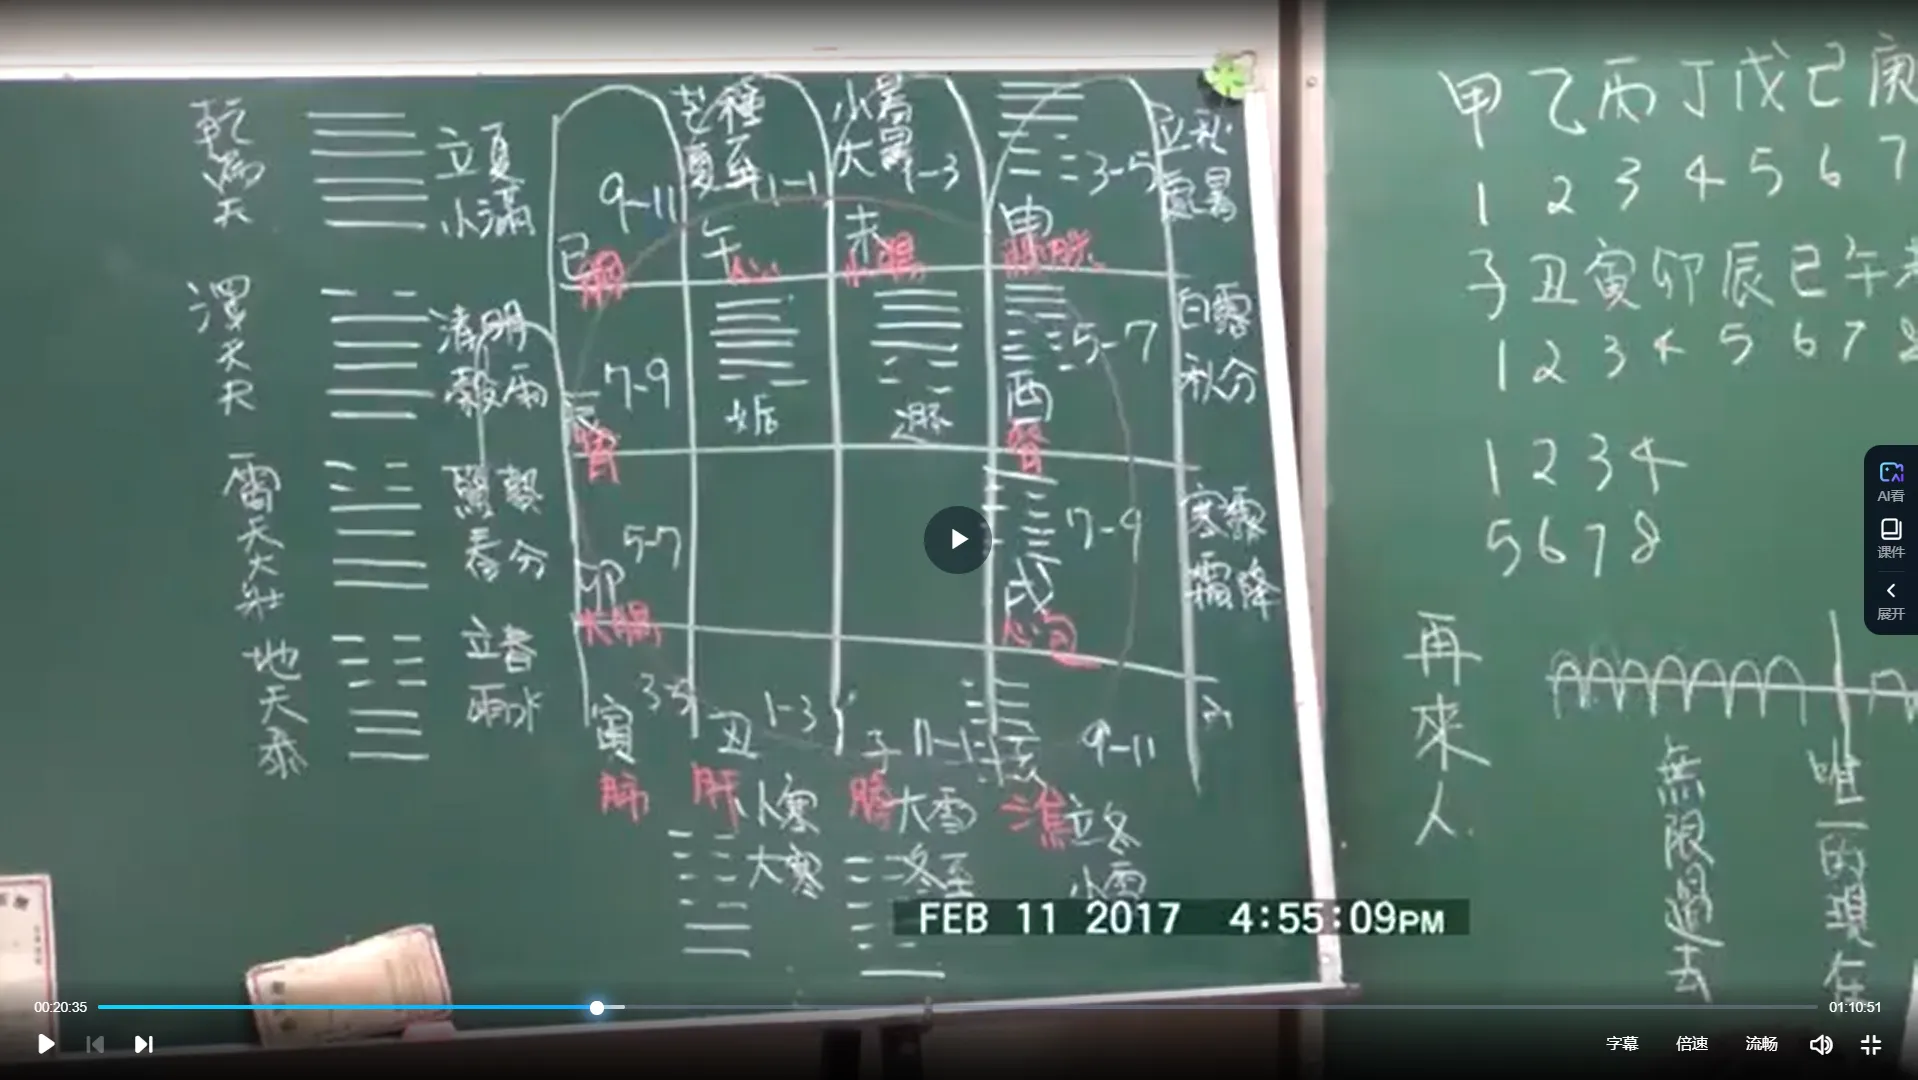 乾為天
立夏
小滿
澤天夬
清明
穀雨
雷天大壯
驚蟄
春分
地天泰
立春
雨水
9-11
巳
芒種
夏至
11-1
午
心
小暑
大暑
1-3
未
小腸
3-5
申
膀胱
立秋
處暑
7-9
辰
胃
姤
遯
5-7
酉
腎
白露
秋分
5-7
卯
大腸
7-9
戌
心包
寒露
霜降
3-5
寅
肺
1-3
丑
肝
小寒
大寒
11-1
子
膽
大雪
冬至
9-11
亥
三焦
立冬
小雪
甲乙丙丁戊己庚
1 2 3 4 5 6 7
子丑寅卯辰巳午未
1 2 3 4 5 6 7 8
1 2 3 4
5 6 7 8
再來人
無限過去
唯一的現在
FEB 11 2017 4:55:09PM
AI看
课件
展开
00:20:35
01:10:51
字幕
倍速
流畅